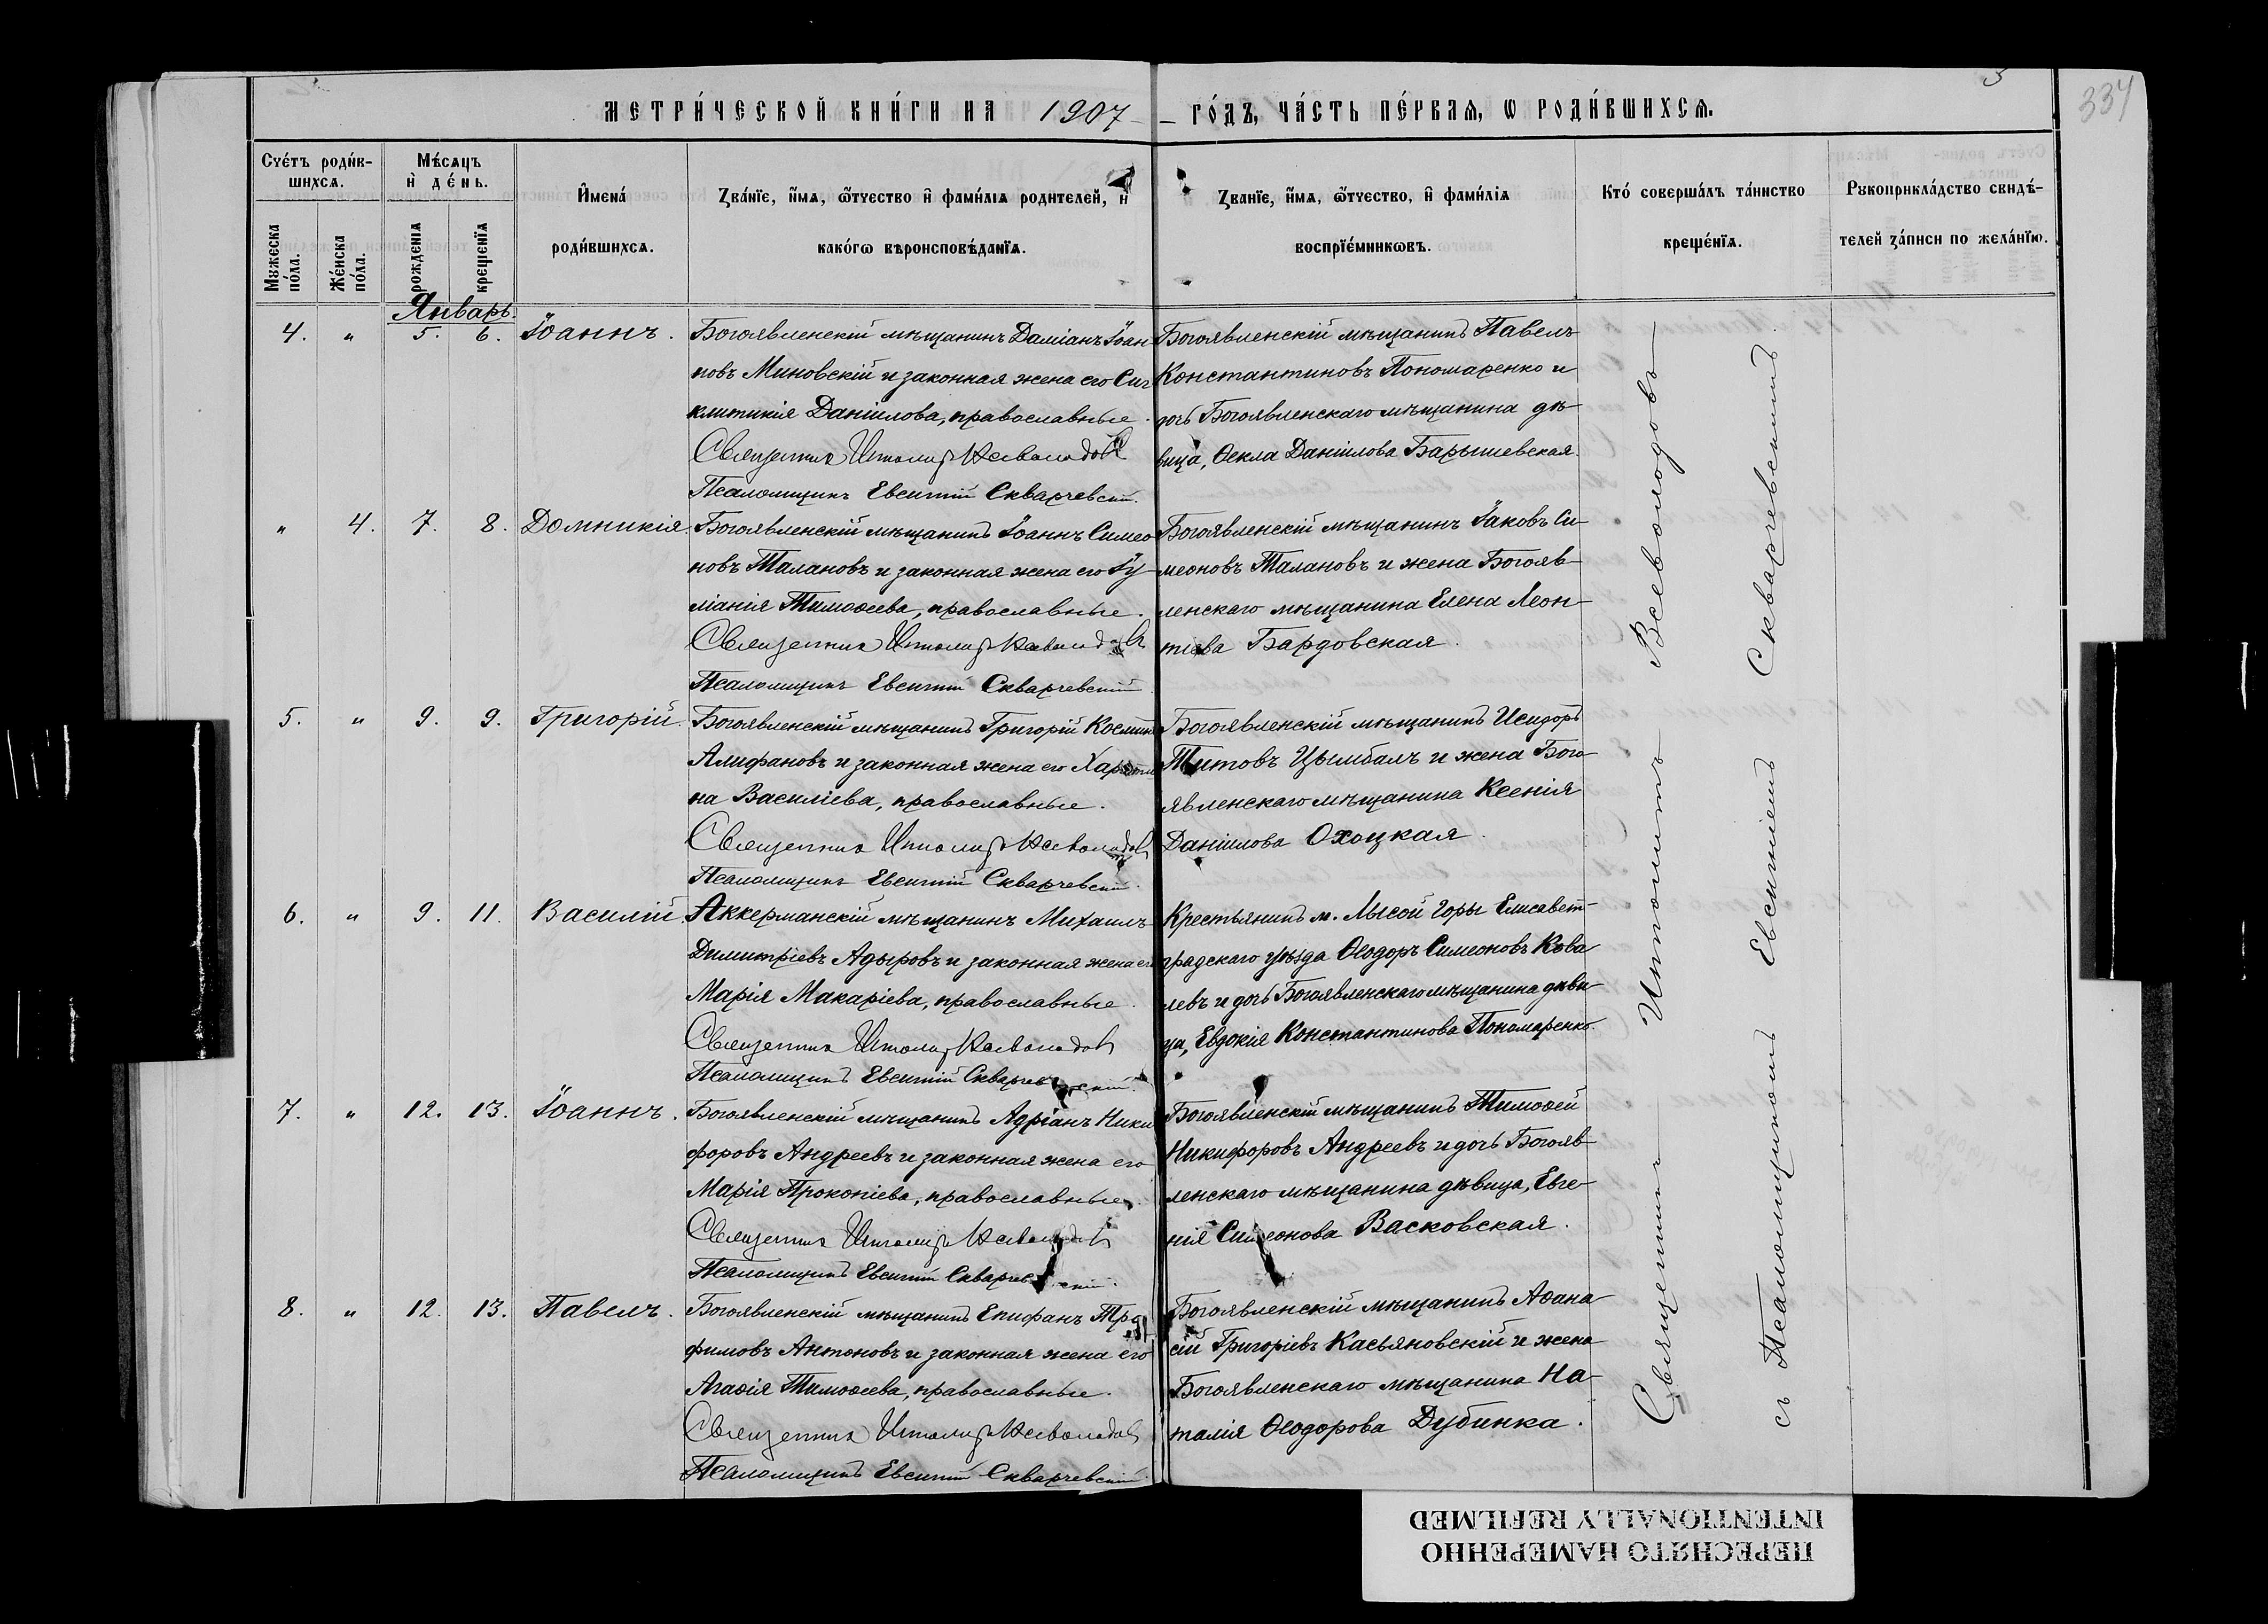 3
334
МЕТРИ́ЧЕСКОЙ КНИ́ГИ НА 1907 ГО́ДЪ, ЧА́СТЬ ПЕ́РВАѦ, Ѡ РОДИ́ВШИХСѦ.
Сче́тъ роди́в-
шихсѧ.
Мꙋжеска
по́ла.
Же́нска
по́ла.
Мѣ́сѧцъ
и҆ де́нь.
рожденїѧ
крещенїѧ
И҆мена́
роди́вшихсѧ.
Ꙁва́нїе, и҆́мѧ, ѻ҆́тчество и҆ фами́лїѧ родителей, и҆
како́гѡ вѣроисповѣ́данїѧ.
Ꙁванїе, и҆́мѧ, ѻ҆́тчество, и҆ фами́лїѧ
воспрїе́мниковъ.
Кто́ соверша́лъ та́инство
креще́нїѧ.
Рꙋкоприкла́дство свидѣ́-
телей ꙁа́писи по жела́нїю.
Январь.
4. " 5. 6. Іоаннъ.
Богоявленскій мѣщанинъ Даміанъ Іоан-
новъ Миновскій и законная жена его Син
клитикія Даніилова, православные.
Священникъ Ипполитъ Всеволодовъ
Псаломщикъ Евсигній Скварчевскій.
Богоявленскій мѣщанинъ Павелъ
Константиновъ Пономаренко и
дочь Богоявленскаго мѣщанина дѣ-
вица, Ѳекла Даніилова Барышевская.
" 4. 7. 8. Домникія.
Богоявленскій мѣщанинъ Іоаннъ Симео
новъ Талановъ и законная жена его Іу-
ліанія Тимоѳеева, православные.
Священникъ Ипполитъ Всеволодовъ
Псаломщикъ Евсигній Скварчевскій
Богоявленскій мѣщанинъ Іаковъ Си-
меоновъ Талановъ и жена Богояв-
ленскаго мѣщанина Елена Леон-
тіева Бардовская.
5. " 9. 9. Григорій.
Богоявленскій мѣщанинъ Григорій Космин
Алифановъ и законная жена его Харити
на Василіева, православные.
Священникъ Ипполитъ Всеволодовъ
Псаломщикъ Евсигній Скварчевскій.
Богоявленскій мѣщанинъ Исидоръ
Титовъ Цымбалъ и жена Бого-
явленскаго мѣщанина Ксенія
Даніилова Охоцкая.
6. " 9. 11. Василій.
Аккерманскій мѣщанинъ Михаилъ
Димитріевъ Адыровъ и законная жена его
Марія Макаріева, православные.
Священникъ Ипполитъ Всеволодовъ
Псаломщикъ Евсигній Скварчевскій.
Крестьянинъ м. Лысой Горы Елисавет-
градскаго уѣзда Ѳеодоръ Симеоновъ Кова
левъ и дочь Богоявленскаго мѣщанина дѣви-
ца, Евдокія Константинова Пономаренко.
7. " 12. 13. Іоаннъ.
Богоявленскій мѣщанинъ Адріанъ Ники
форовъ Андреевъ и законная жена его
Марія Прокопіева, православные.
Священникъ Ипполитъ Всеволодовъ
Псаломщикъ Евсигній Скварчевскій.
Богоявленскій мѣщанинъ Тимоѳей
Никифоровъ Андреевъ и дочь Богояв-
ленскаго мѣщанина дѣвица, Евге-
нія Симеонова Васковская.
8. " 12. 13. Павелъ.
Богоявленскій мѣщанинъ Епифанъ Тро
фимовъ Антоновъ и законная жена его
Агаѳія Тимоѳеева, православные.
Священникъ Ипполитъ Всеволодовъ
Псаломщикъ Евсигній Скварчевскій.
Богоявленскій мѣщанинъ Аѳана-
сій Григоріевъ Касьяновскій и жена
Богоявленскаго мѣщанина На-
талія Ѳеодорова Дубинка.
Священникъ Ипполитъ Всеволодовъ
съ Псаломщикомъ Евсигніемъ Скварчевскимъ.
ПЕРЕСНЯТО НАМЕРЕННО
INTENTIONALLY REFILMED